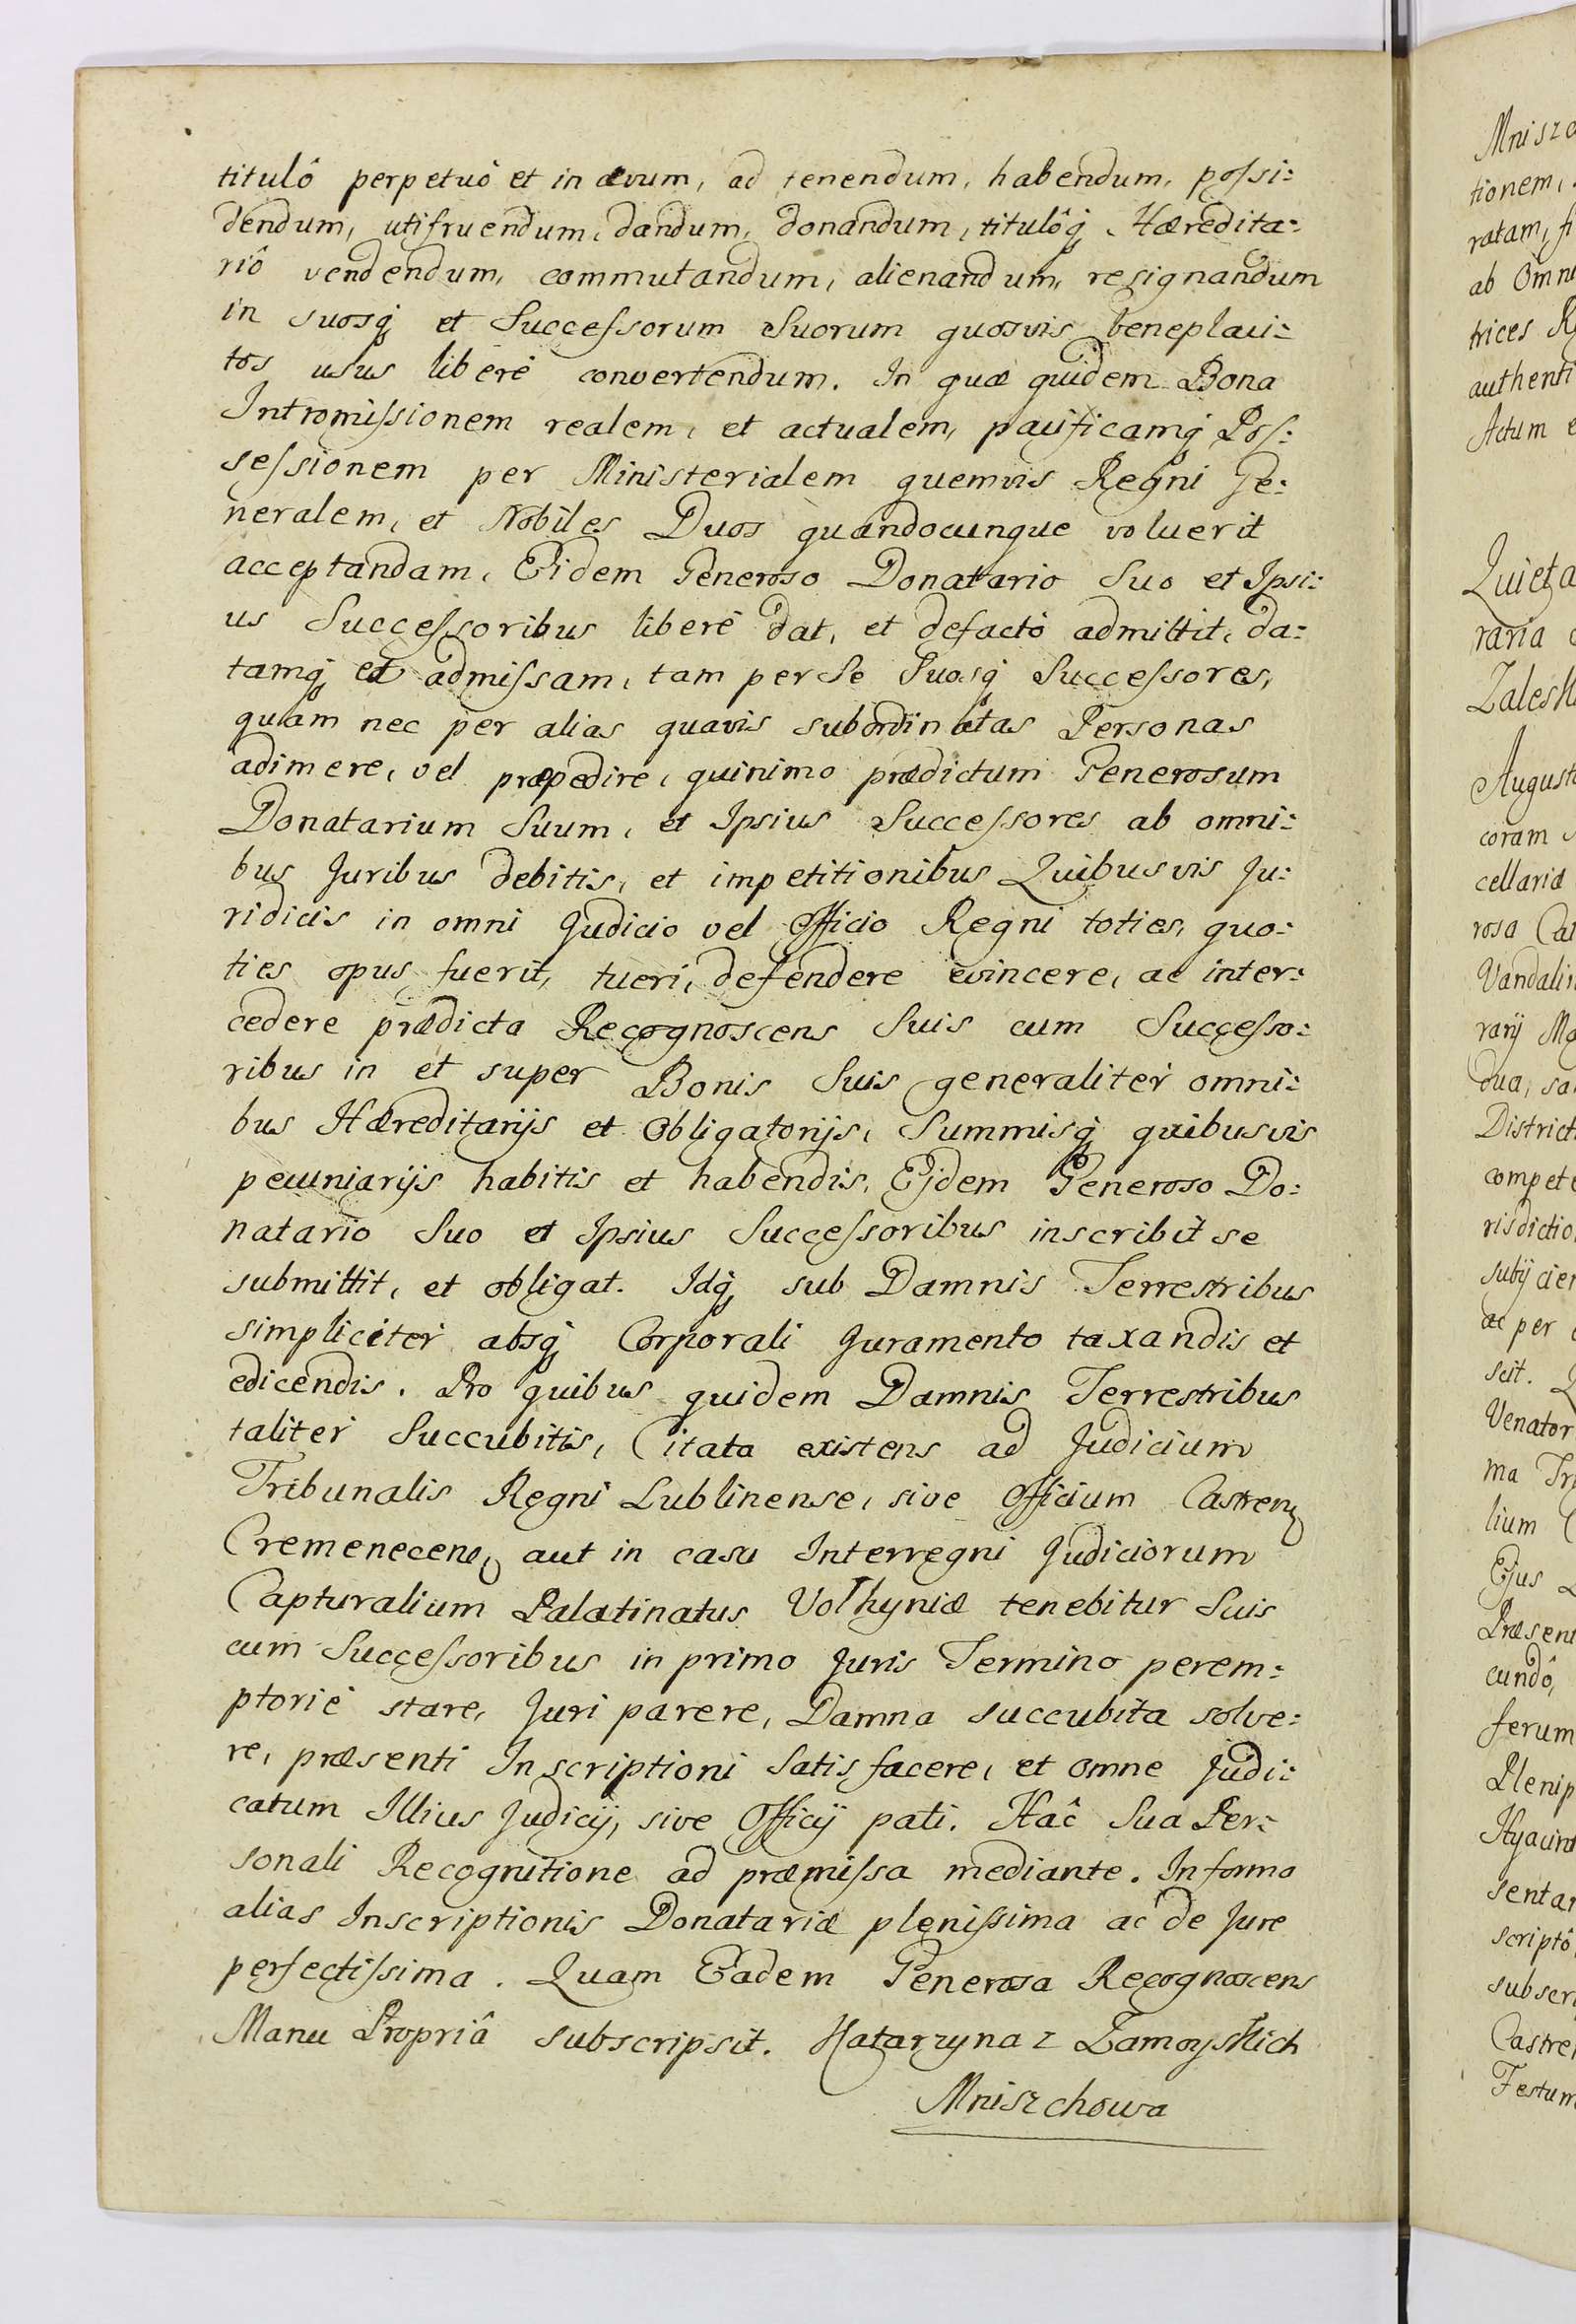 titulô perpetuò et in ævum, ad tenendum, habendum, possi:
dendum, utifruendum, dandum, donandum, titulôq; Hæredita:
riô vendendum, commutandum, alienandum, resignandum
in suosq; et Successorum Suorum quosvis beneplaci:
tos usus liberè convertendum. In quæ quidem Bona
Intromissionem realem, et actualem, pacificamq; Pos:
sessionem per Ministerialem quemvis Regni Ge:
neralem, et Nobiles Duos quandocunque voluerit
acceptandam, Eidem Generoso Donatario Suo et Ipsi:
us Successoribus liberè dat, et defactò admittit, da:
tamq; et admissam, tam per Se Suosq; Successores,
quàm nec per alias quavis subordinatas Personas
adimere, vel præpedire, quinimo prædictum Generosum
Donatarium Suum, et Ipsius Successores ab omni:
bus Juribus debitis, et impetitionibus Quibusvis Ju:
ridicis in omni Judicio vel Officio Regni toties, quo:
ties opus fuerit, tueri, defendere evincere, ac inter:
cedere prædicta Recognoscens Suis cum Successo:
ribus in et super Bonis Suis generaliter omni:
bus Hæreditarijs et Obligatorijs, Summisq; quibusvis
pecuniarijs habitis et habendis, Ejdem Generoso Do:
natario Suo et Ipsius Successoribus inscribit se
submittit, et obligat. Idq; sub Damnis Terrestribus
simpliciter absq; Corporali Juramento taxandis et
edicendis. Pro quibus quidem Damnis Terrestribus
taliter Succubitis, Citata existens ad Judicium
Tribunalis Regni Lublinense, sive Officium Castren;
Cremenecen; aut in casu Interregni Judiciorum
Capturalium Palatinatus Volhyniæ tenebitur Suis
cum Successoribus in primo Juris Termino perem:
ptoriè stare, Juri parere, Damna succubita solve:
re, præsenti Inscriptioni Satisfacere, et omne Judi:
catum Illius Judicij, sive Officij pati. Hâc Sua Per:
sonali Recognitione ad præmissa mediante. In forma
alias Inscriptionis Donatariæ plenissima ac de Jure
perfectissima. Quam Eadem Generosa Recognoscens
Manu Propriâ subscripsit. Katarzyna z Zamoyskich
Mniszchowa
Mnisz
tionem,
ratam,
ab Omni
trices
authenti
Actum
Quieta
raria
Zalesk
August
coram
cellariæ
rosa
Vandalin
rarij
dua,
District
compete
risdictio
subijcien
ac per
scit.
Venator
ma
lium
Ejus
Præsent
cundô,
ferum
Plenip
Hyacint
sentan
scriptô
subscri
Castren
Festum